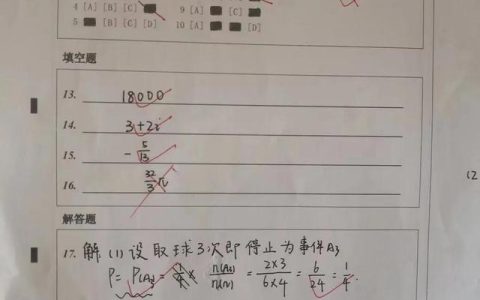 4 [A] [B] [C] 9 [A] [C]
5 [B] [C] [D] 10 [A] [D]
填空题
13. 18000
14. 3+2i
15. -5/13
16. 32/3 π
解答题
17. 解 (1) 设取球3次即停止为事件A3
P= P(A3) = n(A3)/n(Ω) = 2×3/6×4 = 6/24 = 1/4.
(2